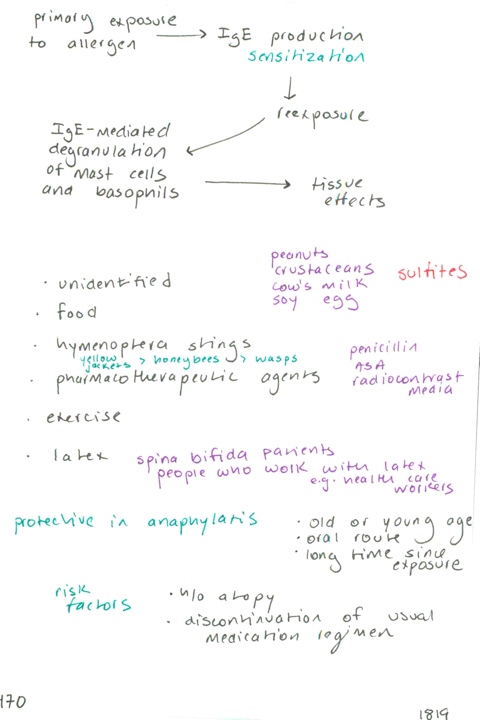 primary exposure
to allergen
IgE production
sensitization
reexposure
IgE-mediated
degranulation
of mast cells
and basophils
tissue
effects
peanuts
crustaceans
cow's milk
soy egg
sulfites
· unidentified
· food
· hymenoptera stings
yellow
jackers > honeybees > wasps
· pharmacotherapeutic agents
penicillin
ASA
radiocontrast
media
· exercise
· latex
spina bifida patients
people who work with latex
e.g. health care
workers
protective in anaphylaxis
· old or young age
· oral route
· long time since
exposure
risk
factors
· h/o atopy
· discontinuation of usual
medication regimen
170
1819